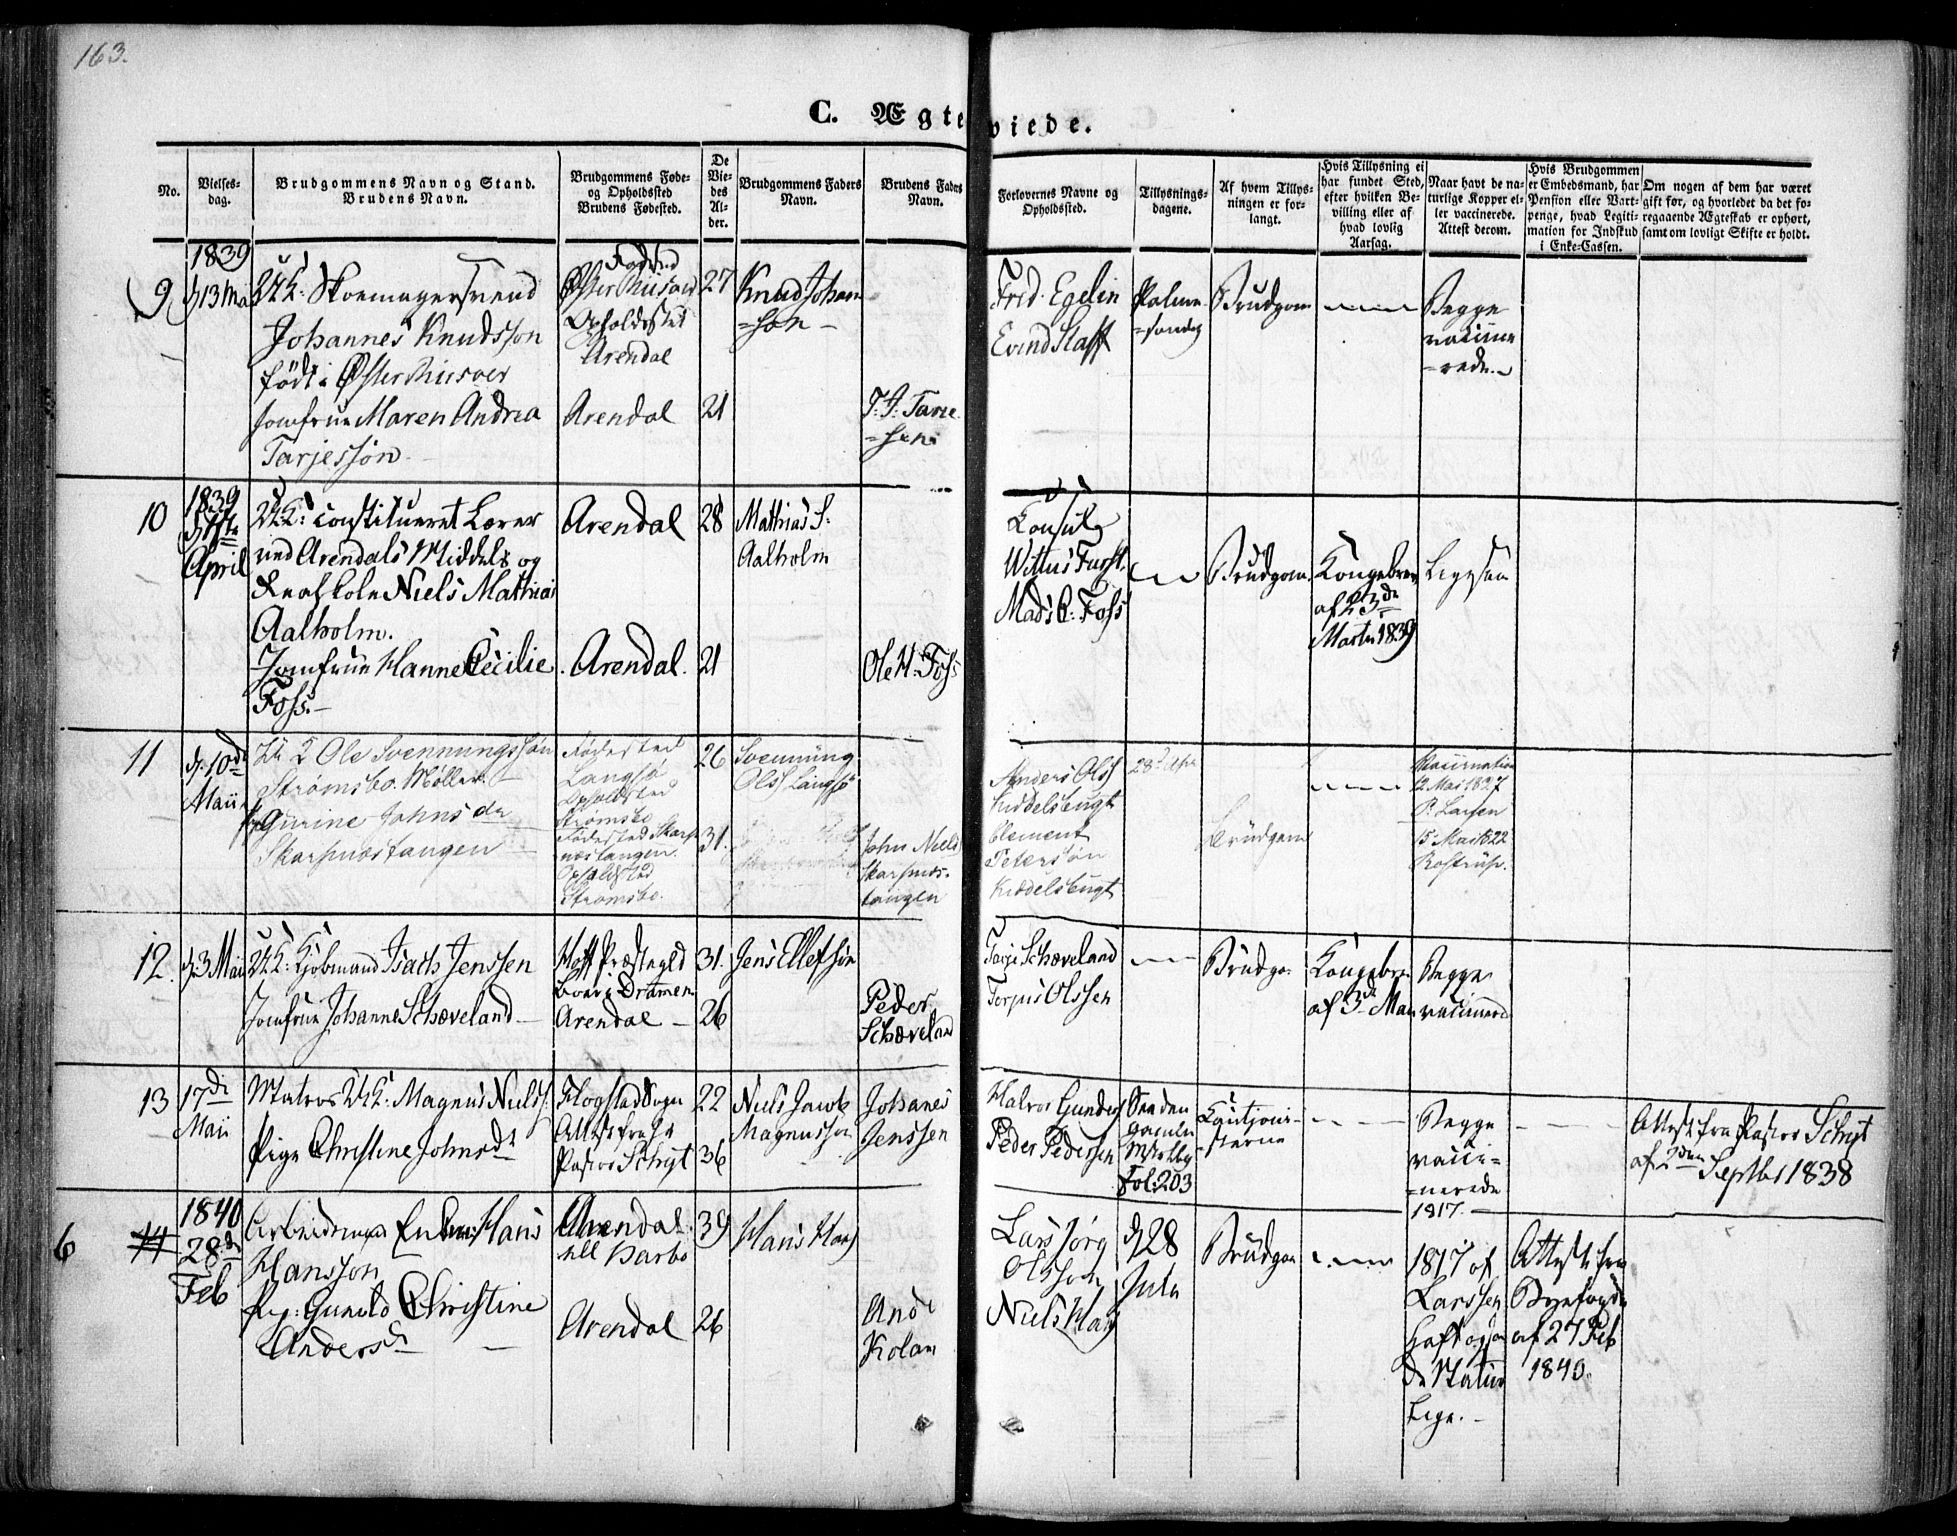 163.
C. Ægteviede.
No.
Vielses-
dag.
Brudgommens Navn og Stand.
Brudens Navn.
Brudgommens Føde-
og Opholdssted
Brudens Fødested.
De
Vie-
des
Al-
der.
Brudgommens Faders
Navn.
Brudens Faders
Navn.
Forlovernes Navne og
Opholdssted.
Tillysnings-
dagene.
Af hvem Tillys-
ningen er for-
langt.
Hvis Tillysning ei
har fundet Sted,
efter hvilken Be-
villing eller af
hvad lovlig
Aarsag.
Naar havt de na-
turlige Kopper el-
ler vaccinerede.
Attest derom.
Hvis Brudgommen
er Embedsmand, har
Pension eller Vart-
penge, hvad Legiti-
mation for Indskud
i Enke-Cassen.
Om nogen af dem har været
gift før, og hvorledet da det fo-
regaaende Ægteskab er ophørt,
samt om lovligt Skifte er holdt.
9
1839
Skoemagersvend
Johannes Knudsson
født i Øster Riisoer
Jomfrue Maren Andrea
Tarjessøn
Fødested
Øster Riisoer
Opholdssted
Arendal
Arendal
27
21
Knud Johan
=son
Frid. Egelin
Evind Staff
Palme
=søndag
Brudgom
Begge
vaccine
=rede.
10
1839
April
constitueret Lærer
ved Arendals Middels og
Realskole Niels Mathias
Aalholm.
Jomfrue Hanne Cecilie
Foss.
Arendal
Arendal.
28
21
Mathias S.
Aalholm
Ole H. Foss
Consul
Mads C. Foss
Brudgom
Kongebrev
af 23de
Marts 1839
Ligesaa
11
d. 10de
Maii
Ole Svennungssøn
Strømsbo. Møller.
Gurine Johnsdr
Skarpnæstangen
Fødested
Langsø
Opholdsted
Strømsbo
Fødested Skarp
næstangen.
Opholdsted
Strømsbo.
26
31.
Svennüng
Olss Langsø
John Niels
Skarpnæs-
tangen
Anders Olss
Kiddelsbugt
Clement
Petersøn
Kiddelsbugt
28. Apr
Brüdgom
Vaccination
12 Mai 1827
P. Larsen
15 Mai 1822
12.
d. 3 Maii
Kjøbmand Isach Jenssen
Jomfrue Johanne Schoveland
boer i Dramen
Arendal
31.
26
Jens Ellefsøn
Peder
Schoveland
Tarje Schoveland
Torjus Olssen
Brüdgo
Kongebre
af 3d Mai
Begge
vaccinered
13
17de
Maii
Matros Magnus Nielss.
Pige Christine Johnsdt
Pastor Schyt
22
36
Niels Jacob
Magnusson
Johanes
Jenssen
Halvor Gunders
Peder Pederssen
Fol. 203
Begge
vacci=
=nerede
1817.
Attest fra Pastor Schyt
af 2den Septbr 1838
6
14
1840
28de
Feb
Hans
Hansson
Gunild Christine
Andersdr
Arendal
Arendal
39
26
Hans Haas
And
Kolam
Lars Jørg
Olsson
Niels Haas
d. 28
Brüdgom
1817 af
Larssen
Attest fra
Byefogde
af 27 Feb
1840.